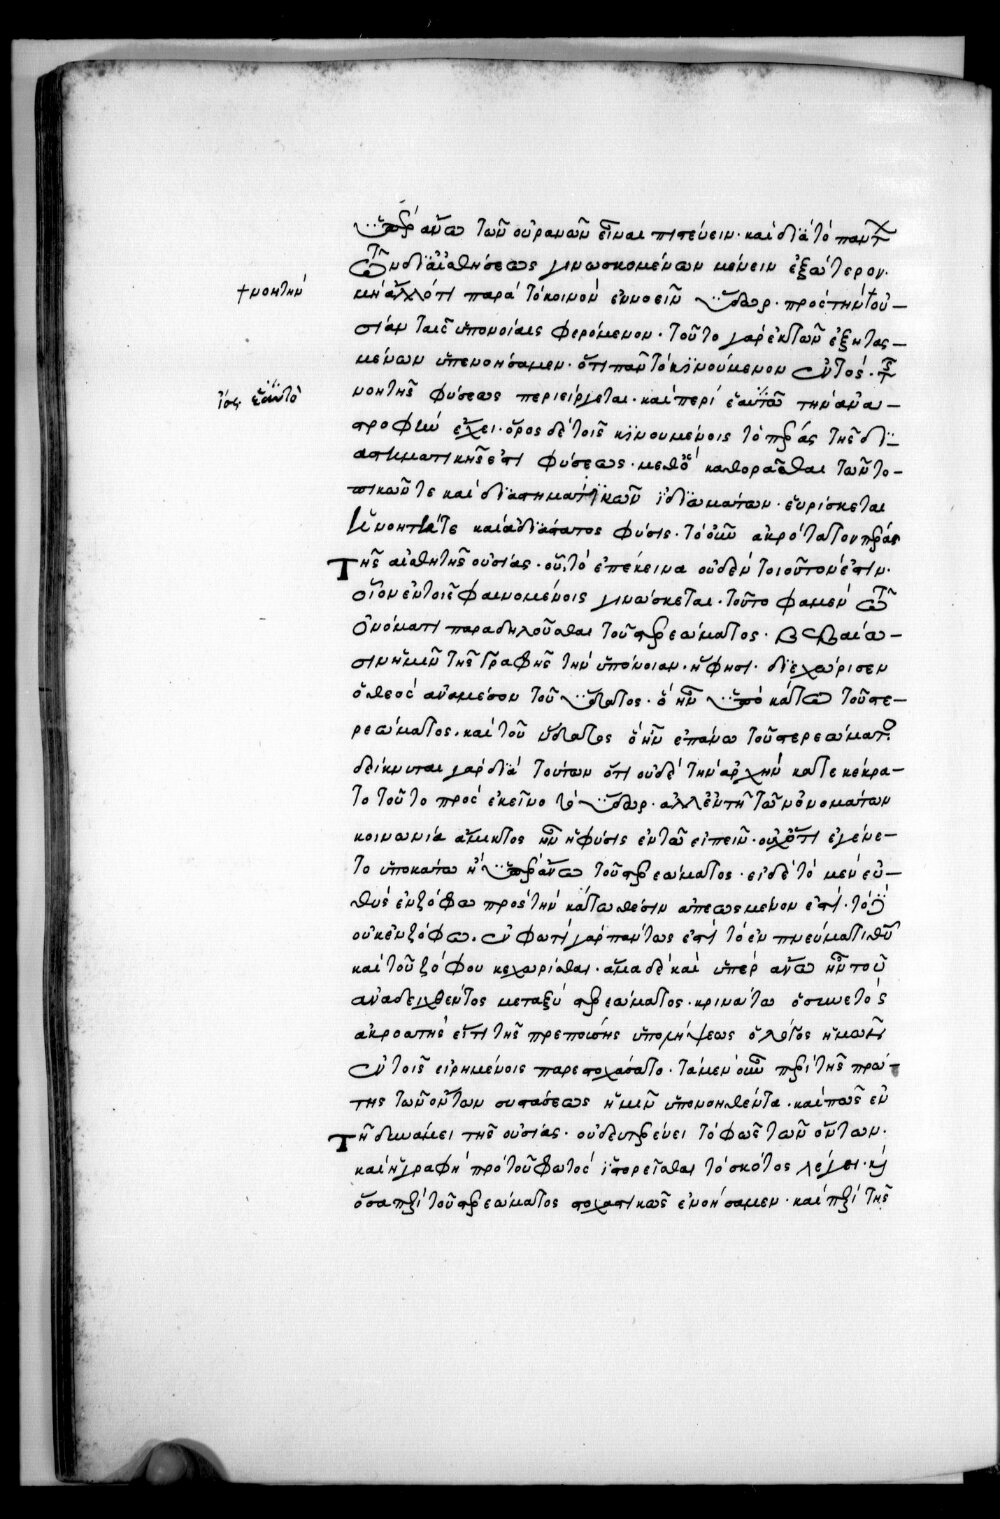 ὑπεράνω τῶν οὐρανῶν εἶναι πιστεύειν· καὶ διὰ τὸ παντὸς
τῶν δι' αἰσθήσεως γινωσκομένων μένειν ἐξώτερον·
+ νοητὴν
μὴ ἄλλό τι παρὰ τὸ κοινὸν ἐννοεῖν ὕδωρ· πρὸς τὴν + οὐ–
σίαν ταῖς ὑπονοίαις φερόμενον· τοῦτο γὰρ ἐκ τῶν ἐξητας–
μένων ὑπενοήσαμεν· ὅτι πᾶν τὸ κινούμενον ἐντὸς τῆς
ἴσ. ἑαυτὸ
νοητῆς φύσεως περιείργεται· καὶ περὶ ἑαυτῶ τὴν ἀνα–
στροφὴν ἔχει· ὅρος δὲ τοῖς κινουμένοις τὸ πέρας τῆς δι–
αστηματικῆς ἐστι φύσεως· μεθ' ὃ καθορᾶσθαι τῶν το–
πικῶν τε καὶ διαστηματικῶν ἰδιωμάτων· εὑρίσκεται
ἡ νοητή τε καὶ ἀδιάστατος φύσις· τὸ οὖν ἀκρότατον πέρας
τῆς αἰσθητῆς οὐσίας· οὗ τὸ ἐπέκεινα οὐδὲν τοιοῦτον ἐστὶν·
οἷον ἐν τοῖς φαινομένοις γινώσκεται· τοῦτο φαμὲν τῶ
ὀνόματι παραδηλοῦσθαι τοῦ στερεώματος· βεβαιῶ–
σιν ἡμῖν τῆς γραφῆς τὴν ὑπόνοιαν· ἥ φησι· διεχώρισεν
ὁ θεὸς ἀναμέσον τοῦ ὕδατος· ὁ ἦν ὑπὸ κάτω τοῦ στε–
ρεώματος· καὶ τοῦ ὕδατος ὁ ἦν ἐπάνω τοῦ στερεώματος·
δείκνυται γὰρ διὰ τούτων ὅτι οὐδὲ τὴν ἀρχὴν κατεκέκρα–
το τοῦτο πρὸς ἐκεῖνο τὸ ὕδωρ· ἀλλ' ἐν τῆ τῶν ὀνομάτων
κοινωνία ἄμικτος ἦν ἡ φύσις ἐν τῶ εἰπεῖν· οὐχ ὅτι ἐγένε–
το ὑποκάτω ἢ ὑπεράνω τοῦ στερεώματος· εἰ δὲ τὸ μὲν εὐ–
θὺς ἐν ζόφω πρὸς τὴν κάτω θέσιν ἀπεωσμένον ἐστί· τὸ δὲ
οὐκ ἐν ζόφω· ἐν φωτὶ γὰρ πάντως ἐστὶ τὸ ἐν πνεύματι θεοῦ
καὶ τοῦ ζόφου κεχωρίσθαι· ἅμα δὲ καὶ ὑπὲρ ἄνω ἦν τοῦ
ἀναδειχθέντος μεταξὺ στερεώματος· κρινάτω ὁ συνετὸς
ἀκροατὴς εἴ τι τῆς πρεπούσης ὑπολήψεως ὁ λόγος ἡμῶν
ἐν τοῖς εἰρημένοις παρεστοχάσατο· τὰ μὲν οὖν περὶ τῆς πρώ–
της τῶν ὄντων συστάσεως ἡμῖν ὑπονοηθέντα· καὶ πῶς ἐν
τῆ δυνάμει τῆς οὐσίας· οὐδ' ὑστερεύει τὸ φῶς τῶν ὄντων·
καὶ ἡ γραφὴ πρὸ τοῦ φωτὸς ἱστορεῖσθαι τὸ σκότος λέγει· καὶ
ὅσα περὶ τοῦ στερεώματος στοχαστικῶς ἐνοήσαμεν· καὶ περὶ τῆς